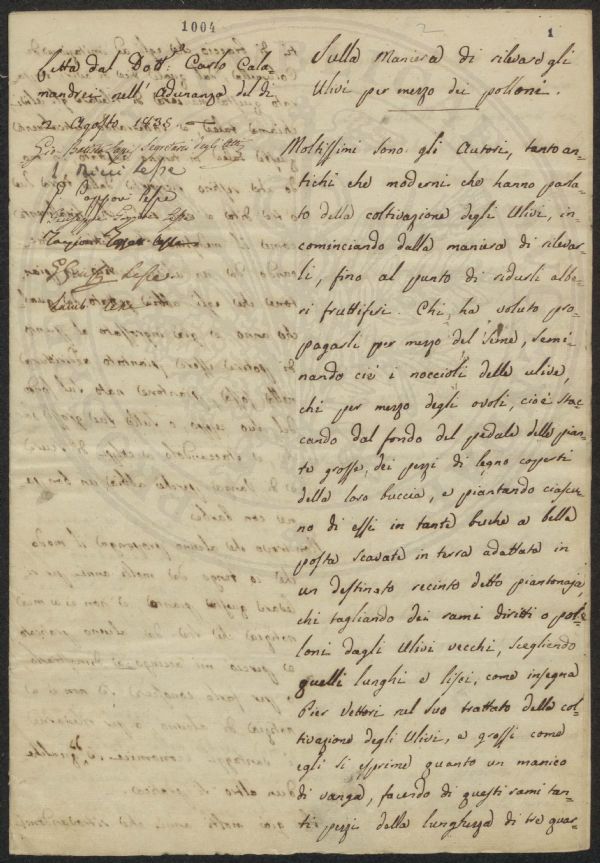 1004
2
1
Letta dal Dott. Carlo Cala-
mandrei nell' Adunanza del dì
2 Agosto 1835
Segretario degli Atti
Ricci lesse
Lesse
Sulla Maniera di rilevare gli
Ulivi per mezzo dei polloni.
Moltissimi sono gli Autori, tanto an-
tichi che moderni che hanno parla-
to della coltivazione degli Ulivi, in-
cominciando dalla maniera di rilevar-
li, fino al punto di ridurli albe-
ri fruttiferi. Chi, ha voluto pro-
pagarli per mezzo del seme, semi-
nando cioè i noccioli delle ulive,
chi per mezzo degli ovoli, cioè stac-
cando dal fondo del pedale delle pian-
te grosse, dei pezzi di legno coperti
della loro buccia, e piantando ciascu-
no di essi in tante buche a bella
posta scavate in terra adattata in
un destinato recinto detto piantonaja,
chi tagliando dei rami diritti o pol-
loni dagli Ulivi vecchi, scegliendo
quelli lunghi e lisci, come insegna
Pier Vettori nel suo trattato della col-
tivazione degli Ulivi, e grossi come
egli si esprime quanto un manico
di vanga, facendo di questi rami tan-
ti pezzi della lunghezza di tre quar-